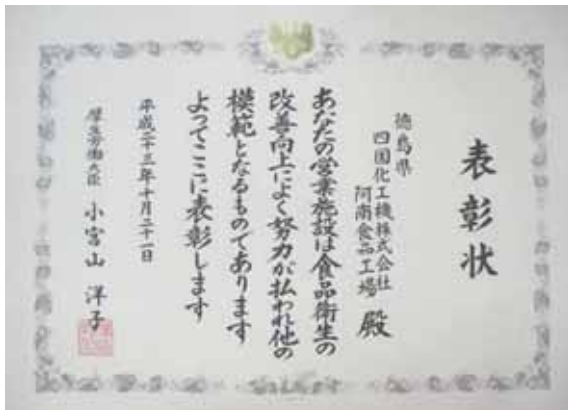 表彰状
徳島県
四国化工機株式会社
阿南食品工場 殿
あなたの営業施設は食品衛生の
改善向上によく努力が払われ他の
模範となるものであります
よってここに表彰します
平成二十三年十月二十一日
厚生労働大臣 小宮山 洋子